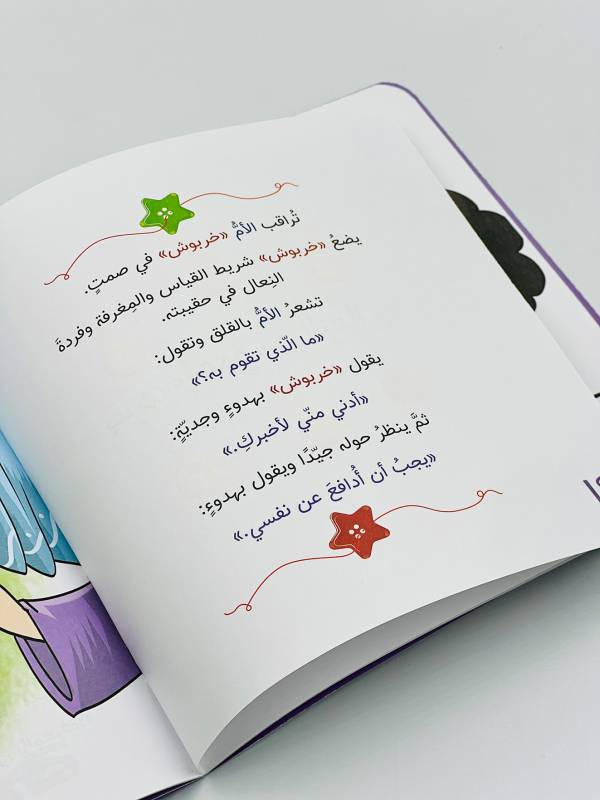 تُراقب الأمُّ «خربوش» في صمتٍ.
يضعُ «خربوش» شريط القياس والمِغرفة وفردةَ
النِعال في حقيبته.
تشعرُ الأمُّ بالقلق وتقول:
«ما الّذي تقوم به؟»
يقول «خربوش» بهدوءٍ وجديّةٍ:
«أدني منّي لأخبركِ.»
ثمَّ ينظرُ حوله جيّدًا ويقول بهدوءٍ:
«يجبُ أن أُدافعَ عن نفسي.»